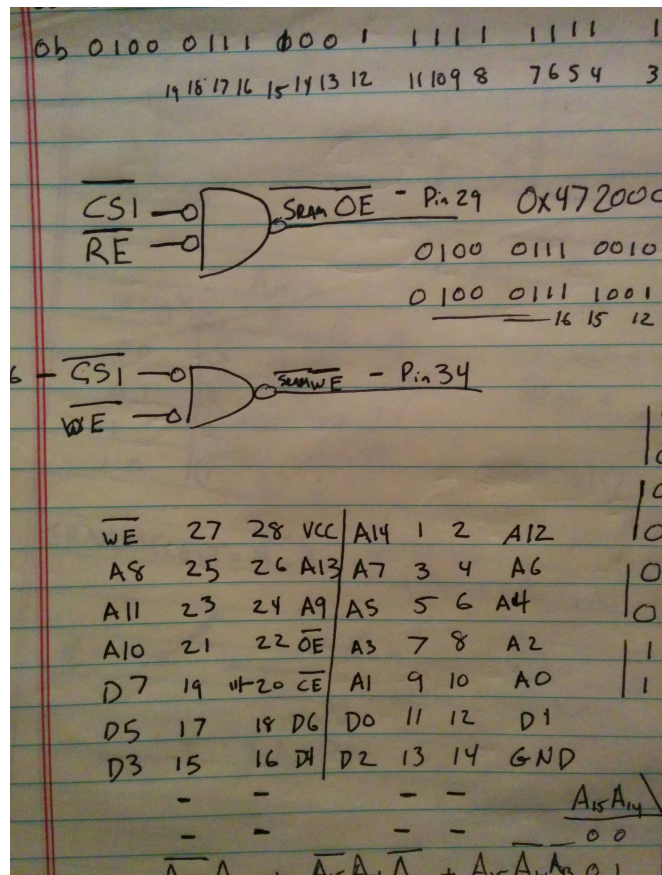 0b 0100 0111 0001 1111 1111 1
19 18 17 16 15 14 13 12 11 10 9 8 7 6 5 4 3
CS1
RE
SRAM OE - Pin 29 0x472000
0100 0111 0010
0100 0111 1001
16 15 12
- CS1
WE
SRAM WE - Pin 34
WE 27 28 VCC A14 1 2 A12
A8 25 26 A13 A7 3 4 A6
A11 23 24 A9 A5 5 6 A4
A10 21 22 OE A3 7 8 A2
D7 19 20 CE A1 9 10 A0
D5 17 18 D6 D0 11 12 D1
D3 15 16 D4 D2 13 14 GND
- - - -
A15 A14
- - - -
0 0
0 1